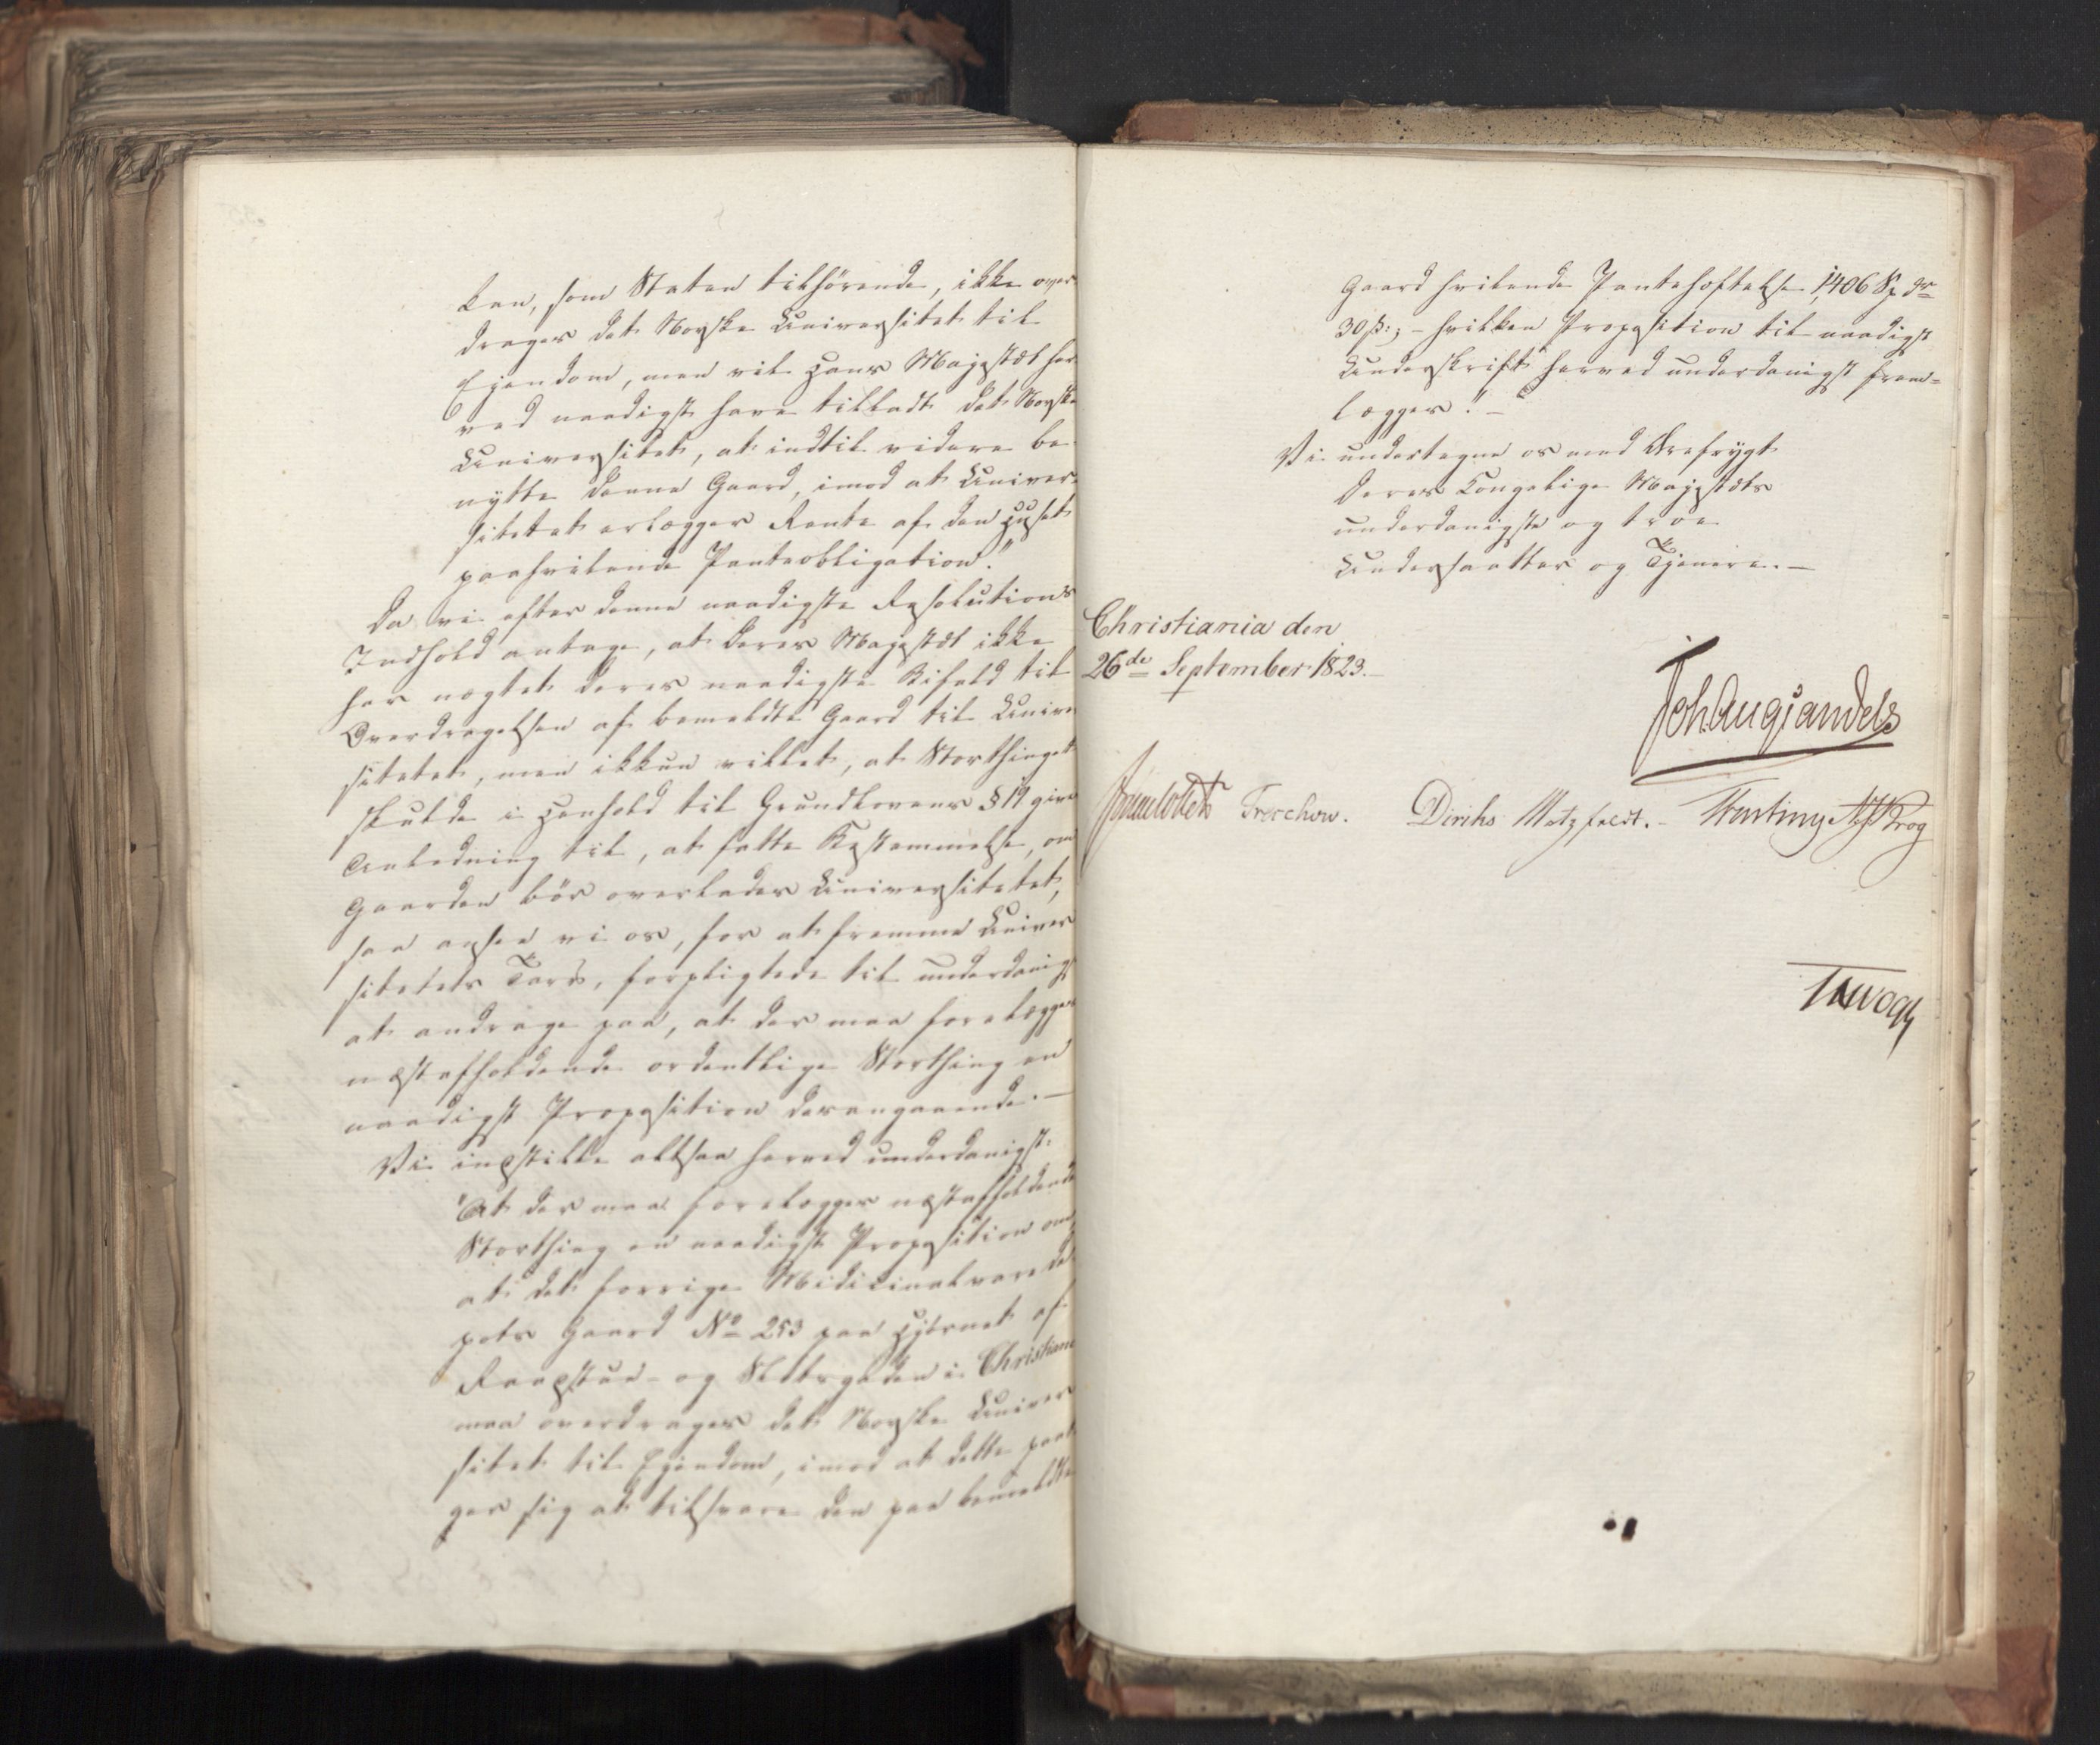 kan, som Staten tilhørende, ikke over-
drages det Norske Universitet til
Ejendom, men vil Hans Majestæt her-
ved naadigst have tilladt det Norske
Universitet, at indtil videre be-
nytte denne Gaard, imod at Univer-
sitetet erlægger Rente af den Huset
paahvilende Panteobligation."
Da vi efter denne naadigste Resolutions
Indhold antage, at Deres Majestæt ikke
har nægtet Deres naadigste Bifald til
Overdragelsen af bemeldte Gaard til Univer
sitetet, men ikkun villet, at Storthinget
skulde i Henhold til Grundlovens § 19 give
Anledning til, at fatte Bestemmelse, om
Gaarden bør overlades Universitetet,
saa ansee vi os, for at fremme Univer
sitetets Tarv, forpligtede til underdanigst
at andrage paa, at der maa forelægges
næstafholdende ordentlige Storthing en
naadigst Proposition derangaaende. —
Vi indstille altsaa herved underdanigst:
"At der maa forelægges næstafholdende
Storthing en naadigst Proposition om,
at det forrige Medicinalvarede-
pots Gaard No 253 paa Hjørnet af
Raadstue- og Slotsgaden i Christiania
maa overdrages det Norske Univer
sitet til Ejendom, imod at dette paata
ger sig at tilsvare den paa bemeldte
Gaard hvilende Pantehæftelse, 1406 Sp dr
30 ß:; - hvilken Proposition til naadigst
Underskrift herved underdanigst frem-
lægges." —
Vi undertegne os med Ærefrygt
Deres Kongelige Majestæts
underdanigste og troe
Undersaatter og Tjenere. —
Christiania den
26de September 1823. —
Joh Aug Sandels
Sommerfeldt Treschow. Diriks Motzfeldt. - Fasting Krog
Vogt